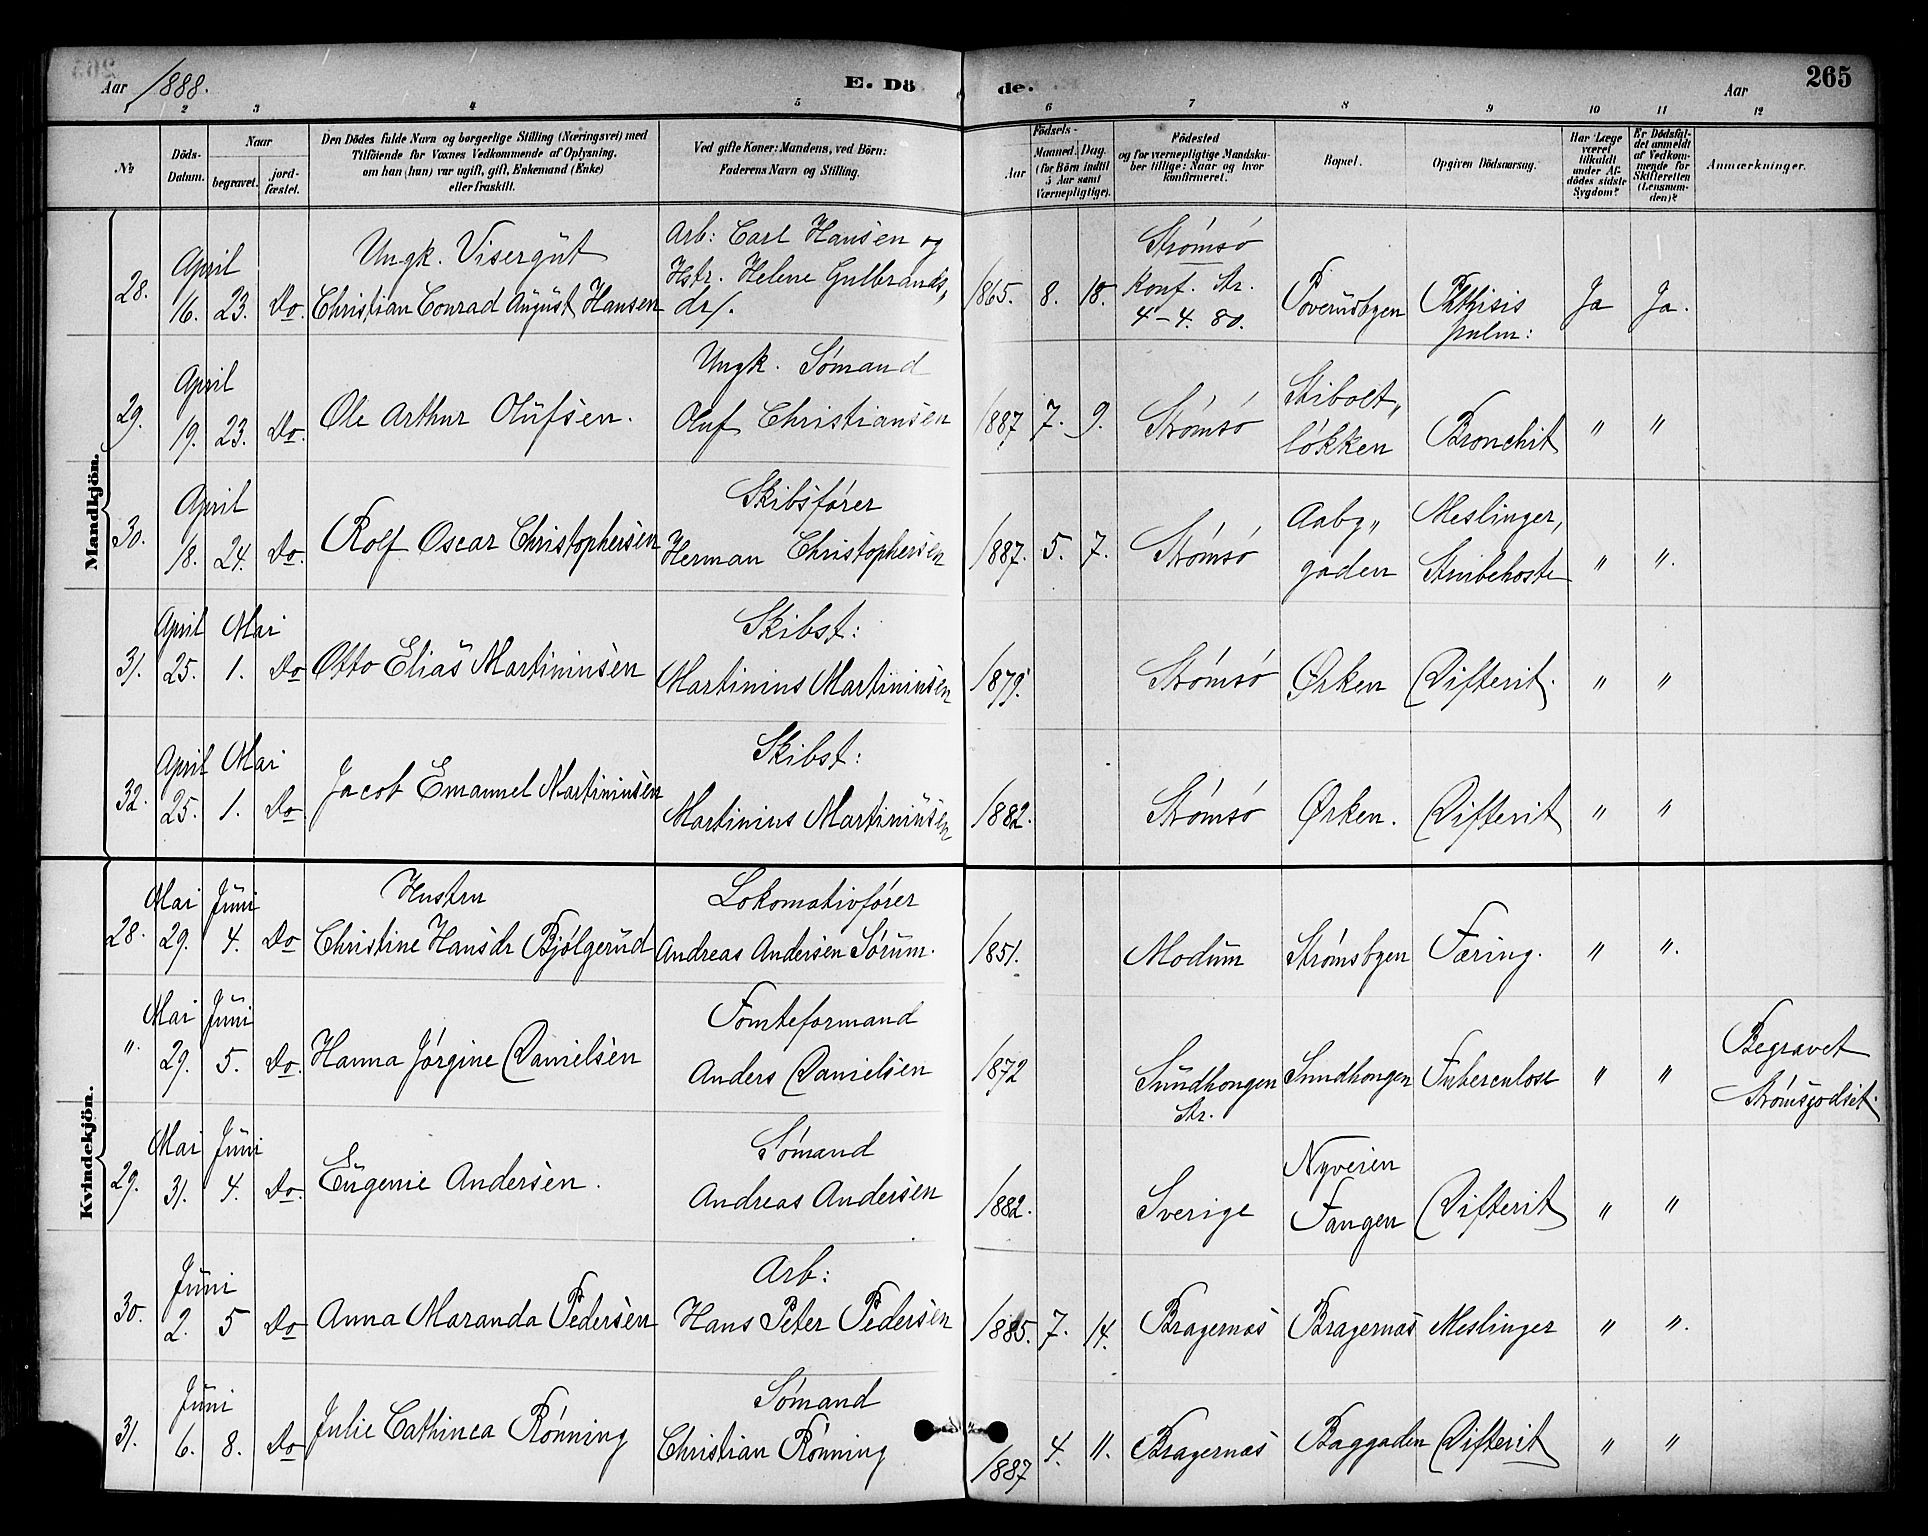 Aar 1888. E. Dö de. Aar 265
1 2 3 4 5 6 7 8 9 10 11 12
No
Döds-Datum.
Naar
begravet.
jord-fæstet.
Den Dödes fulde Navn og borgerlige Stilling (Næringsvei) med
Tilföiende for Voxnes Vedkommende af Oplysning,
om han (hun) var ugift, gift, Enkemand (Enke)
eller fraskilt.
Ved gifte Koner: Mandens, ved Börn:
Faderens Navn og Stilling.
Födsels-
Aar
Maaned. Dag.
(for Börn indtil
5 Aar samt
Værnepligtige).
Födested
og for værnepligtige Mandska-
ber tillige: Naar og hvor
konfirmeret.
Bopæl.
Opgiven Dödsaarsag.
Har Læge
været
tilkaldt
under Af-
dödes sidste
Sygdom?
Er Dödsfal-
det anmeldt
af Vedkom-
mende for
Skifteretten
(Lensman-
den)?
Anmærkninger.
Mandkjön.
28. April 16. 23. Do. Ungk. Visergüt
Christian Conrad August Hansen
Arb: Carl Hansen og
Hstr. Helene Gulbrands,
dr/.
1865. 8. 18. Strømsø
Konf. Str.
4-4. 80.
Poverüdbyen Phthisis
pulm: Ja Ja.
29. April 19. 23. Do. Ole Arthur Olüfsen.
Ungk. Sømand
Oluf Christiansen
1887 7. 9. Strømsø Skibolt„
løkken Bronchit " "
30. April 18. 24. Do. Rolf Oscar Christophersen
Skibsfører
Herman Christophersen
1887. 5. 7. Strømsø Aaby„
gaden Meslinger,
Strubehoste " ".
31. April 25. Mai 1. Do Otto Elias Martiniusen
Skibst:
Martinius Martiniusen
1879. Strømsø Ørken Difterit. " "
32. April 25. Mai 1. Do Jacob Emanuel Martiniusen
Skibst:
Martinius Martiniüsen
1882. Strømsø Ørken. Difterit " "
Kvindekjön.
28. Mai 29. Jüni 4. Do Hustru
Christine Hansdr Bjølgerüd
Lokomotivfører
Andreas Andersen Sørüm.
1851. Modüm Strømsbyen Tæring. " ".
". Mai 29. Jüni 5. Do. Hanna Jørgine Danielsen
Tomteformand
Anders Danielsen
1872 Sündhougen
Str. Sundhougen Tuberculose " " Begravet
Strømsgodset.
29. Mai 31. Jüni 4. Do. Eügenie Andersen.
Sømand
Andreas Andersen
1882. Sverige Nyveien
Tangen Difterit " "
30. Jüni 2. 5 Do Anna Maranda Pedersen
Arb:
Hans Peter Pedersen
1885. 7. 14. Bragernæs Bragernæs Meslinger " ".
31. Jüni 6. 8. Do Julie Cathinca Rønning
Sømand
Christian Rønning
1887 4. 11. Bragernæs Baggaden Difterit " "